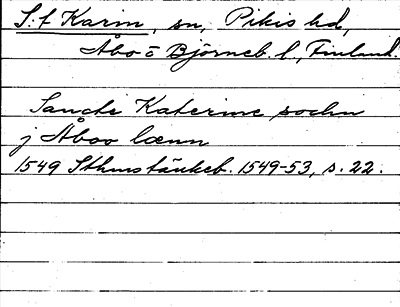 S:t Karin, sn, Pikis hd,
Åbo o Björneb. l, Finland.
Sancti Katerine sochn
j Åboo lænn
1549 Sthms tänkeb. 1549-53, s. 22.